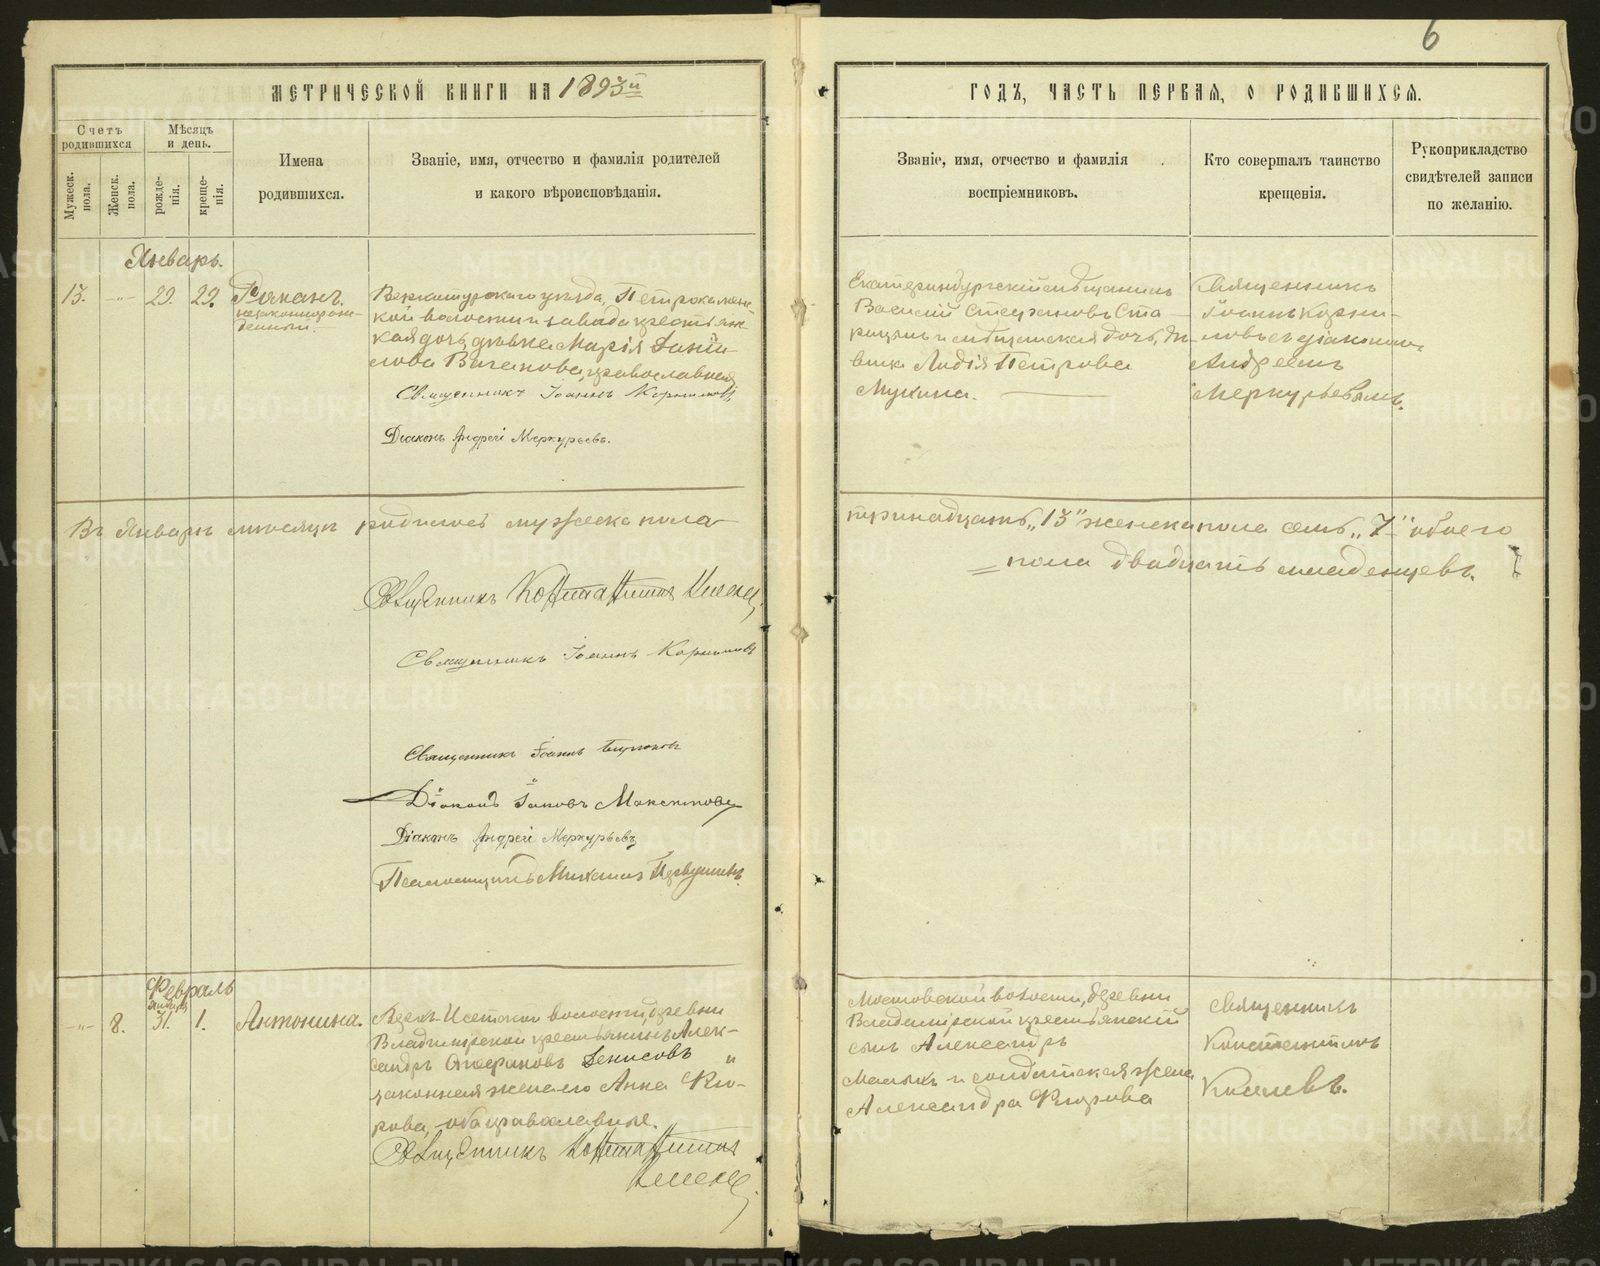 6
МЕТРИЧЕСКОЙ КНИГИ НА 1893й
ГОДЪ, ЧАСТЬ ПЕРВАЯ, О РОДИВШИХСЯ.
Счетъ родившихся
Мужеск. пола.
Женск. пола.
Мѣсяцъ и день.
рожде-нія.
креще-нія.
Имена
родившихся.
Званіе, имя, отчество и фамилія родителей
и какого вѣроисповѣданія.
Званіе, имя, отчество и фамилія
воспріемниковъ.
Кто совершалъ таинство
крещенія.
Рукоприкладство
свидѣтелей записи
по желанію.
Январь.
13. -"- 29. 29. Романъ.
незаконнорож-
денный.
Верхотурскаго уѣзда, Петрокамен-
ской волости и завода крестьян-
ская дочь, дѣвка Марія Даніи-
лова православная
Священникъ Іоаннъ Корниловъ
Діаконъ Андрей Меркурьевъ.
Екатеринбургскій мѣщанинъ
Василій Стефановъ Ста-
рицынъ и мѣщанская дочь, дѣ-
вица Лидія Петрова
Мухина.
Священникъ
Іоаннъ Корни-
ловъ съ діакономъ
Андреемъ
Меркурьевымъ.
Въ Январѣ мѣсяцѣ родилось мужеска пола
тринадцать „13" женска пола семь „7" обоего
пола двадцать младенцевъ.
Священникъ Константинъ
Священникъ Іоаннъ Корниловъ
Священникъ Іоаннъ
Діаконъ Іаковъ
Діаконъ Андрей Меркурьевъ
Псаломщикъ Михаилъ Первушинъ.
Февраль
Января
-"- 8. 31. 1. Антонина.
Верх-Исетской волости, деревни
Владимірской крестьянинъ Алек-
сандръ Денисовъ и
законная жена его Анна Ки-
рова, оба православные.
Священникъ Константинъ
Мостовской волости, деревни
Владимірской крестьянскій
сынъ Александръ
и солдатская жена
Александра
Священникъ
Константинъ
METRIKI.GASO-URAL.RU